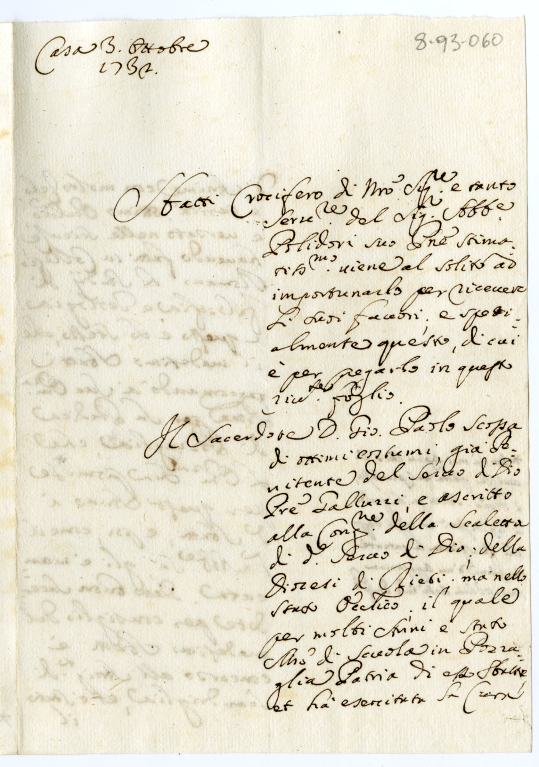 Casa 3. Ottobre
8-93-060
1732.
Crocifero di Nro Sig.re e tanto
Serv.re del Sig.r Abbe
Polidori suo Pne stima
tiss.mo viene al solito ad
importunarlo per ricevere
li suoi favori, e speci
almente questo, di cui
è per pregarlo in questo
foglio.
Il Sacerdote D. Gio. Paolo Scoppa
di ottimi costumi, già Pe-
nitente del Servo di Dio
Pre Galluzzi, e ascritto
alla Con.ne della Scaletta
di do Servo di Dio, della
Diocesi di Rieti, ma nello
Stato il quale
per molti Anni è stato
Mro di Scuola in
glia Patria di
et ha esercitata la